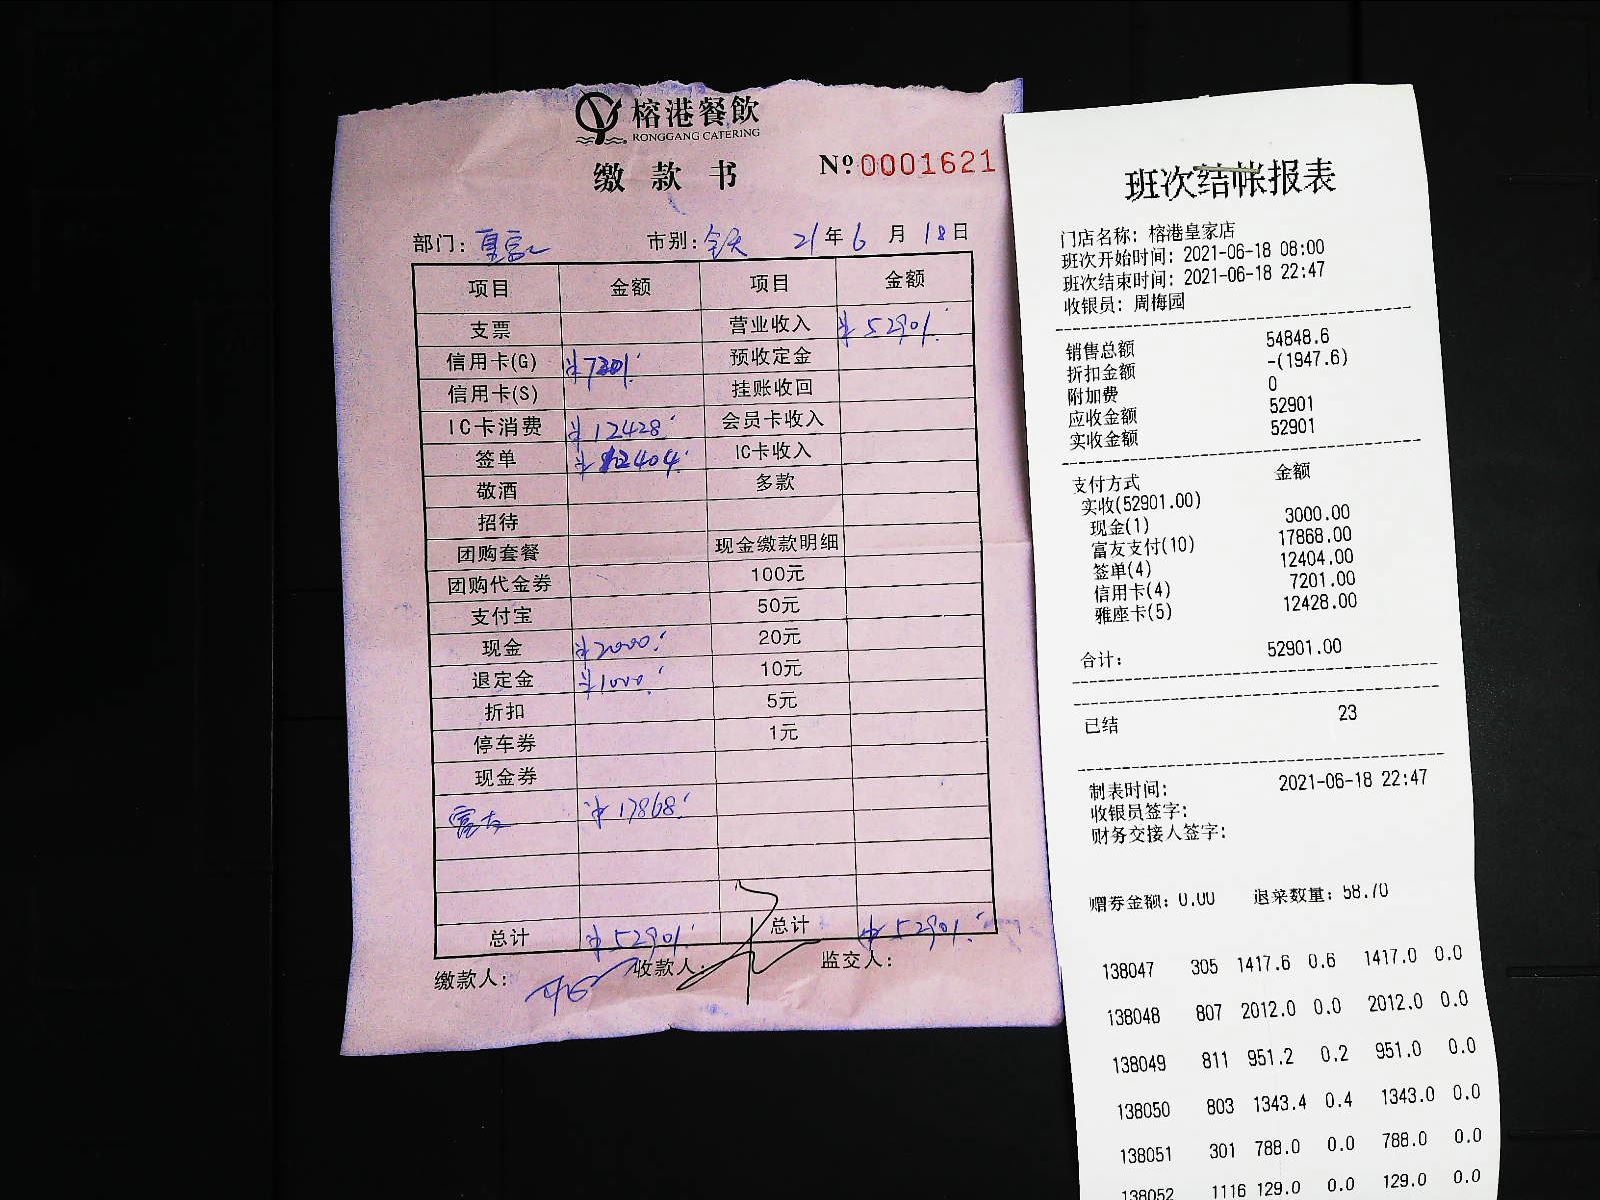 榕港餐飲
RONGGANG CATERING
缴款书
№0001621
部门: 市别: 全天 21年6月18日
项目 金额 项目 金额
支票 营业收入 ¥52901.
信用卡(G) ¥7201. 预收定金
信用卡(S) 挂账收回
IC卡消费 ¥12428. 会员卡收入
签单 ¥12404. IC卡收入
敬酒 多款
招待
团购套餐 现金缴款明细
团购代金券 100元
支付宝 50元
现金 ¥2000. 20元
退定金 ¥1000. 10元
折扣 5元
停车券 1元
现金券
富友 ¥17868.
总计 ¥52901. 总计 ¥52901.
缴款人: 收款人: 监交人:
班次结帐报表
门店名称: 榕港皇家店
班次开始时间: 2021-06-18 08:00
班次结束时间: 2021-06-18 22:47
收银员: 周梅园
销售总额 54848.6
折扣金额 -(1947.6)
附加费 0
应收金额 52901
实收金额 52901
支付方式 金额
实收(52901.00)
现金(1) 3000.00
富友支付(10) 17868.00
签单(4) 12404.00
信用卡(4) 7201.00
雅座卡(5) 12428.00
合计: 52901.00
已结 23
制表时间: 2021-06-18 22:47
收银员签字:
财务交接人签字:
赠券金额: 0.00 退菜数量: 58.70
138047 305 1417.6 0.6 1417.0 0.0
138048 807 2012.0 0.0 2012.0 0.0
138049 811 951.2 0.2 951.0 0.0
138050 803 1343.4 0.4 1343.0 0.0
138051 301 788.0 0.0 788.0 0.0
138052 1116 129.0 0.0 129.0 0.0